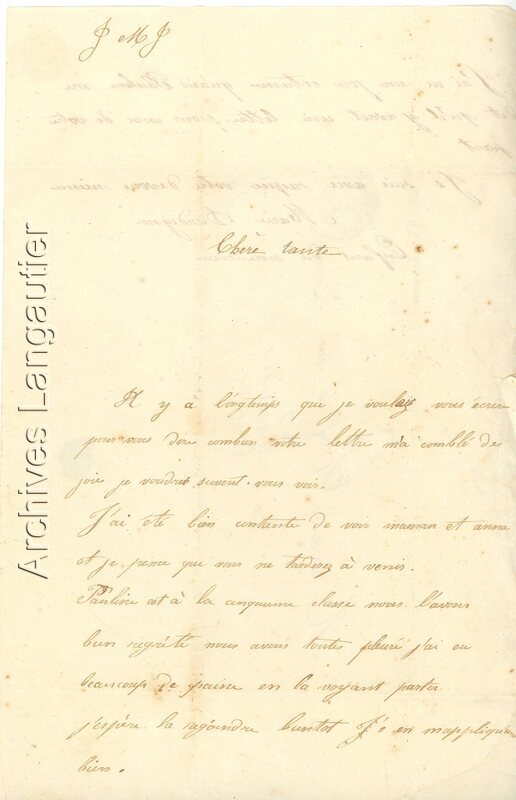 J M J
Chère tante
Il y à longtemps que je voulais vous écrire
pour vous dire combien votre lettre m'a comblé de
joie je voudrais suvent vous voir.
J'ai été bien contante de voir maman et anna
et je pense que vous ne tarderez à venir.
Pauline est à la cinquieme classe nous l'avons
bien regrété nous avons toutes pleuré j'ai eu
beaucoup de paine en la voyant partir
j'espère la rejoindre bientot en m'appliquant
bien.
Archives Langautier